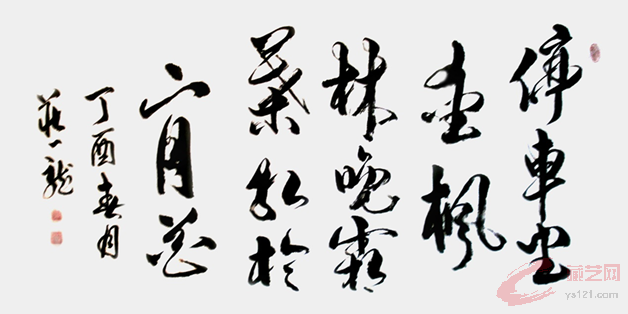 停車坐
愛楓
林晚霜
葉紅於
二月花
丁酉春月
莊一龍
藏艺网
ys121.com